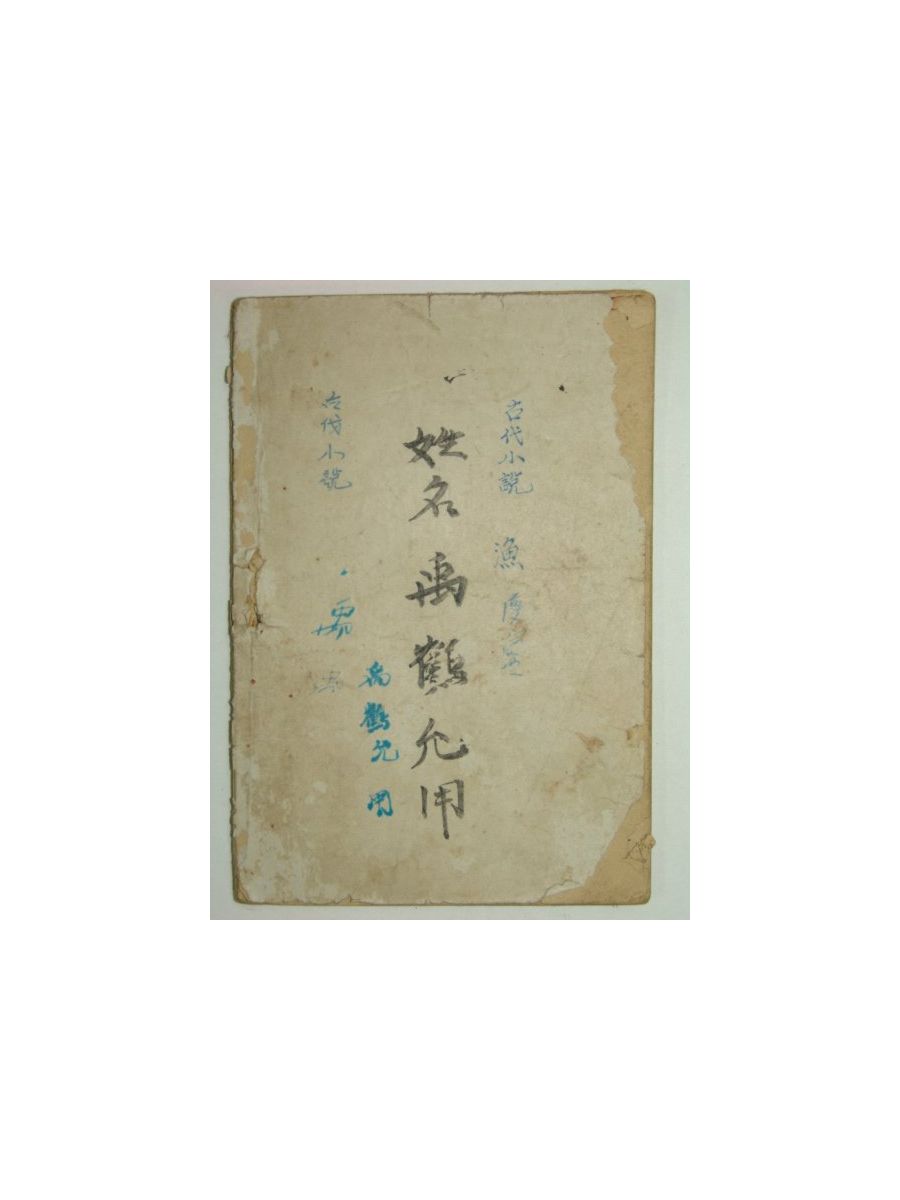 古代小說 漁
姓名 禹鶴允用
禹鶴允用
古代小說